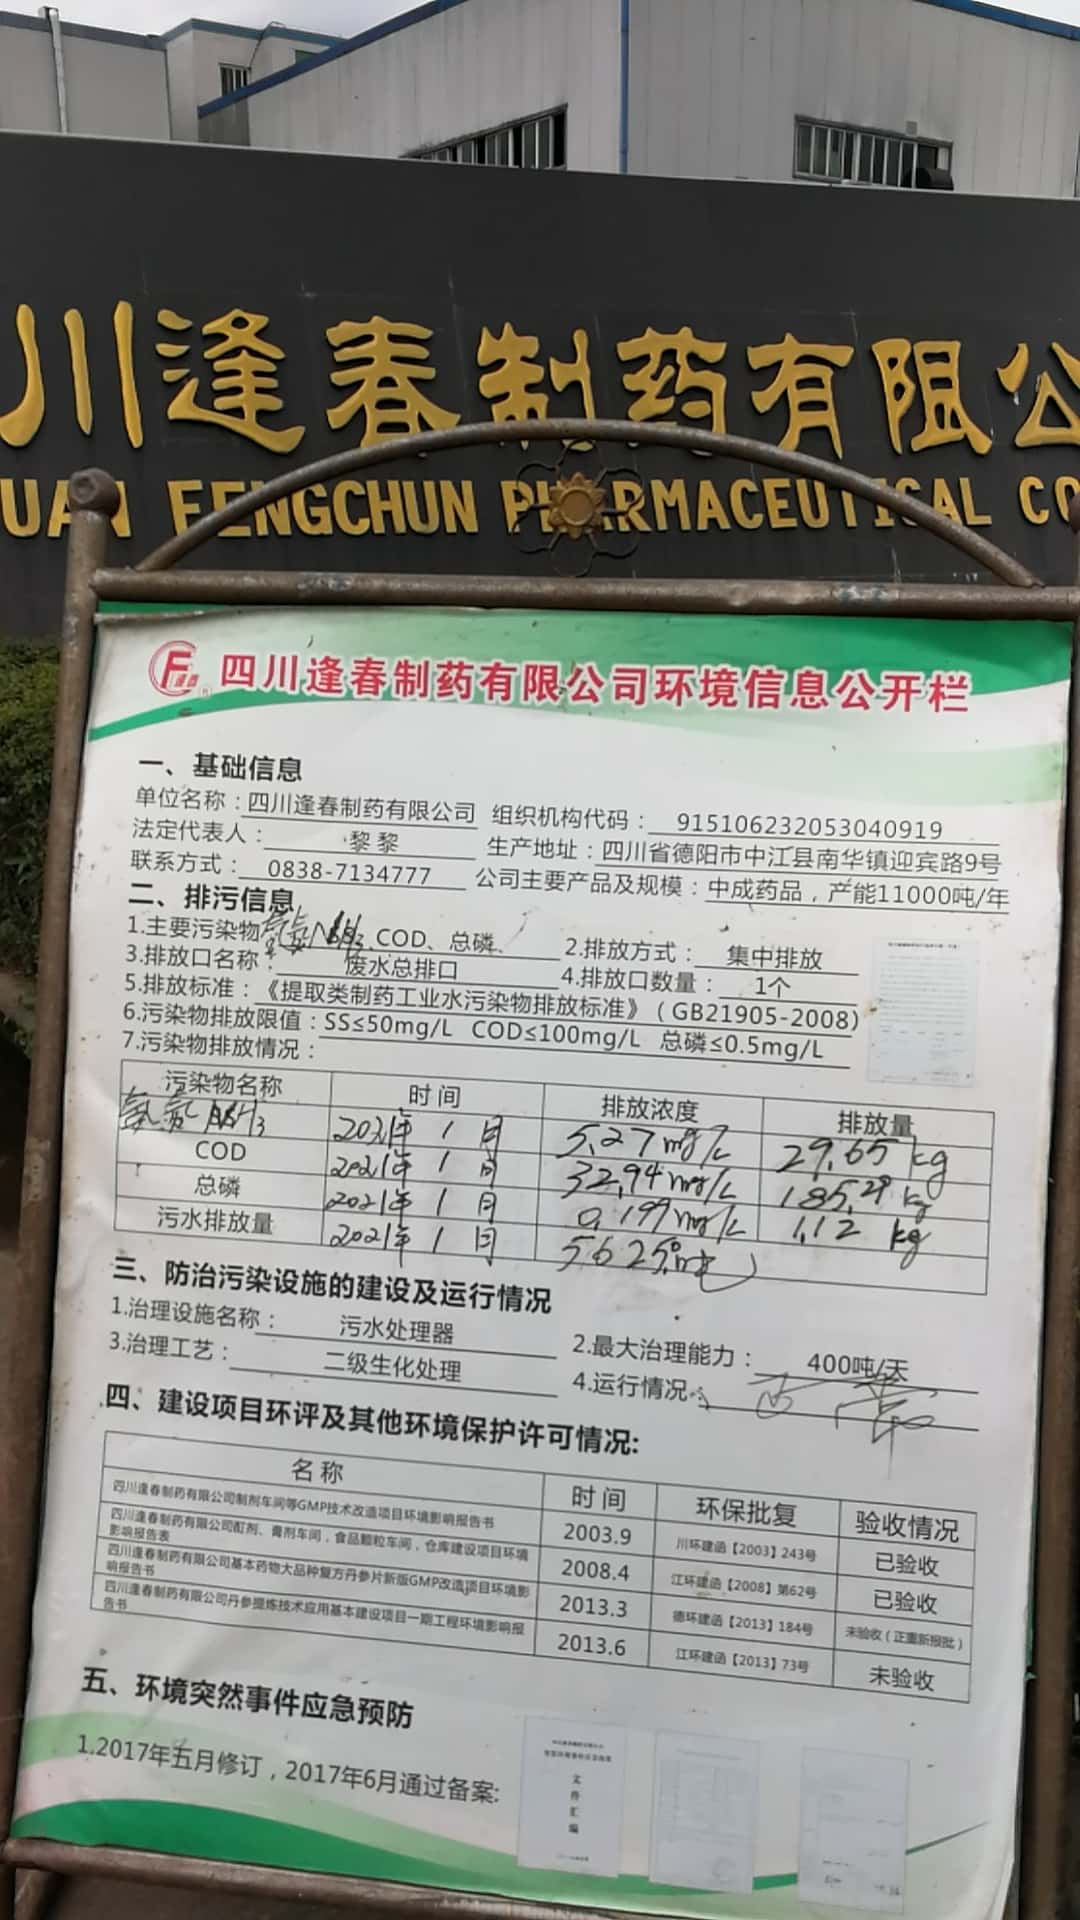 川逢春制药有限公
UAN FENGCHUN PHARMACEUTICAL CO
四川逢春制药有限公司环境信息公开栏
一、基础信息
单位名称：四川逢春制药有限公司 组织机构代码： 915106232053040919
法定代表人： 黎黎 生产地址：四川省德阳市中江县南华镇迎宾路9号
联系方式： 0838-7134777 公司主要产品及规模：中成药品，产能11000吨/年
二、排污信息
1.主要污染物 氨氮NH3、COD、总磷、 2.排放方式： 集中排放
3.排放口名称： 废水总排口 4.排放口数量： 1个
5.排放标准：《提取类制药工业水污染物排放标准》（GB21905-2008）
6.污染物排放限值：SS≤50mg/L COD≤100mg/L 总磷≤0.5mg/L
7.污染物排放情况：
污染物名称 时间 排放浓度 排放量
氨氮 NH3 2021年 1 月 5.27mg/L 29.65 kg
COD 2021年 1 月 32.94mg/L 185.29 kg
总磷 2021年 1 月 0.199mg/L 1.12 kg
污水排放量 2021年 1 月 5625吨
三、防治污染设施的建设及运行情况
1.治理设施名称： 污水处理器 2.最大治理能力： 400吨/天
3.治理工艺： 二级生化处理 4.运行情况： 正常
四、建设项目环评及其他环境保护许可情况:
名称 时间 环保批复 验收情况
四川逢春制药有限公司制剂车间等GMP技术改造项目环境影响报告书 2003.9 川环建函【2003】243号 已验收
四川逢春制药有限公司酊剂、膏剂车间，食品颗粒车间，仓库建设项目环境
影响报告表 2008.4 江环建函【2008】第62号 已验收
四川逢春制药有限公司基本药物大品种复方丹参片新版GMP改造项目环境影
响报告书 2013.3 德环建函【2013】184号 未验收（正重新报批）
四川逢春制药有限公司丹参提炼技术应用基本建设项目一期工程环境影响报
告书 2013.6 江环建函【2013】73号 未验收
五、环境突然事件应急预防
1.2017年五月修订，2017年6月通过备案:
文件汇编